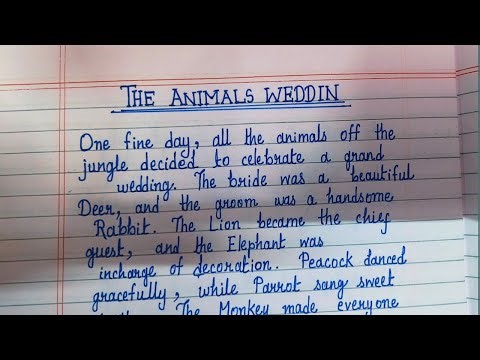 THE ANIMALS WEDDIN
One fine day, all the animals off the
jungle decided to celebrate a grand
wedding. The bride was a beautiful
Deer, and the groom was a handsome
Rabbit. The Lion became the chief
guest, and the Elephant was
incharge of decoration. Peacock danced
gracefully, while Parrot sang sweet
The Monkey made everyone